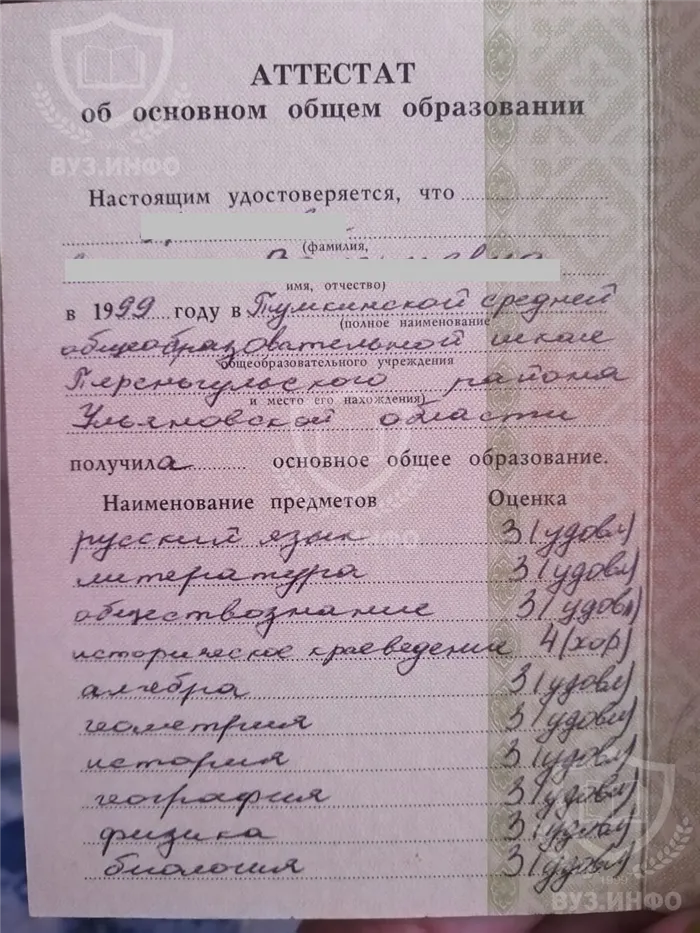 ВУЗ.ИНФО
АТТЕСТАТ
об основном общем образовании
Настоящим удостоверяется, что
(фамилия,
имя, отчество)
в 1999 году в Пумкинской средней
(полное наименование
общеобразовательной школе
общеобразовательного учреждения
района
и место его нахождения)
Ульяновской области
получила основное общее образование.
Наименование предметов Оценка
русский язык 3 (удовл)
ВУЗ.ИНФО
литература 3 (удовл)
обществознание 3 (удовл)
историческое краеведение 4 (хор)
алгебра 3 (удовл)
геометрия 3 (удовл)
история 3 (удовл)
география 3 (удовл)
физика 3 (удовл)
биология 3 (удовл)
ВУЗ.ИНФО